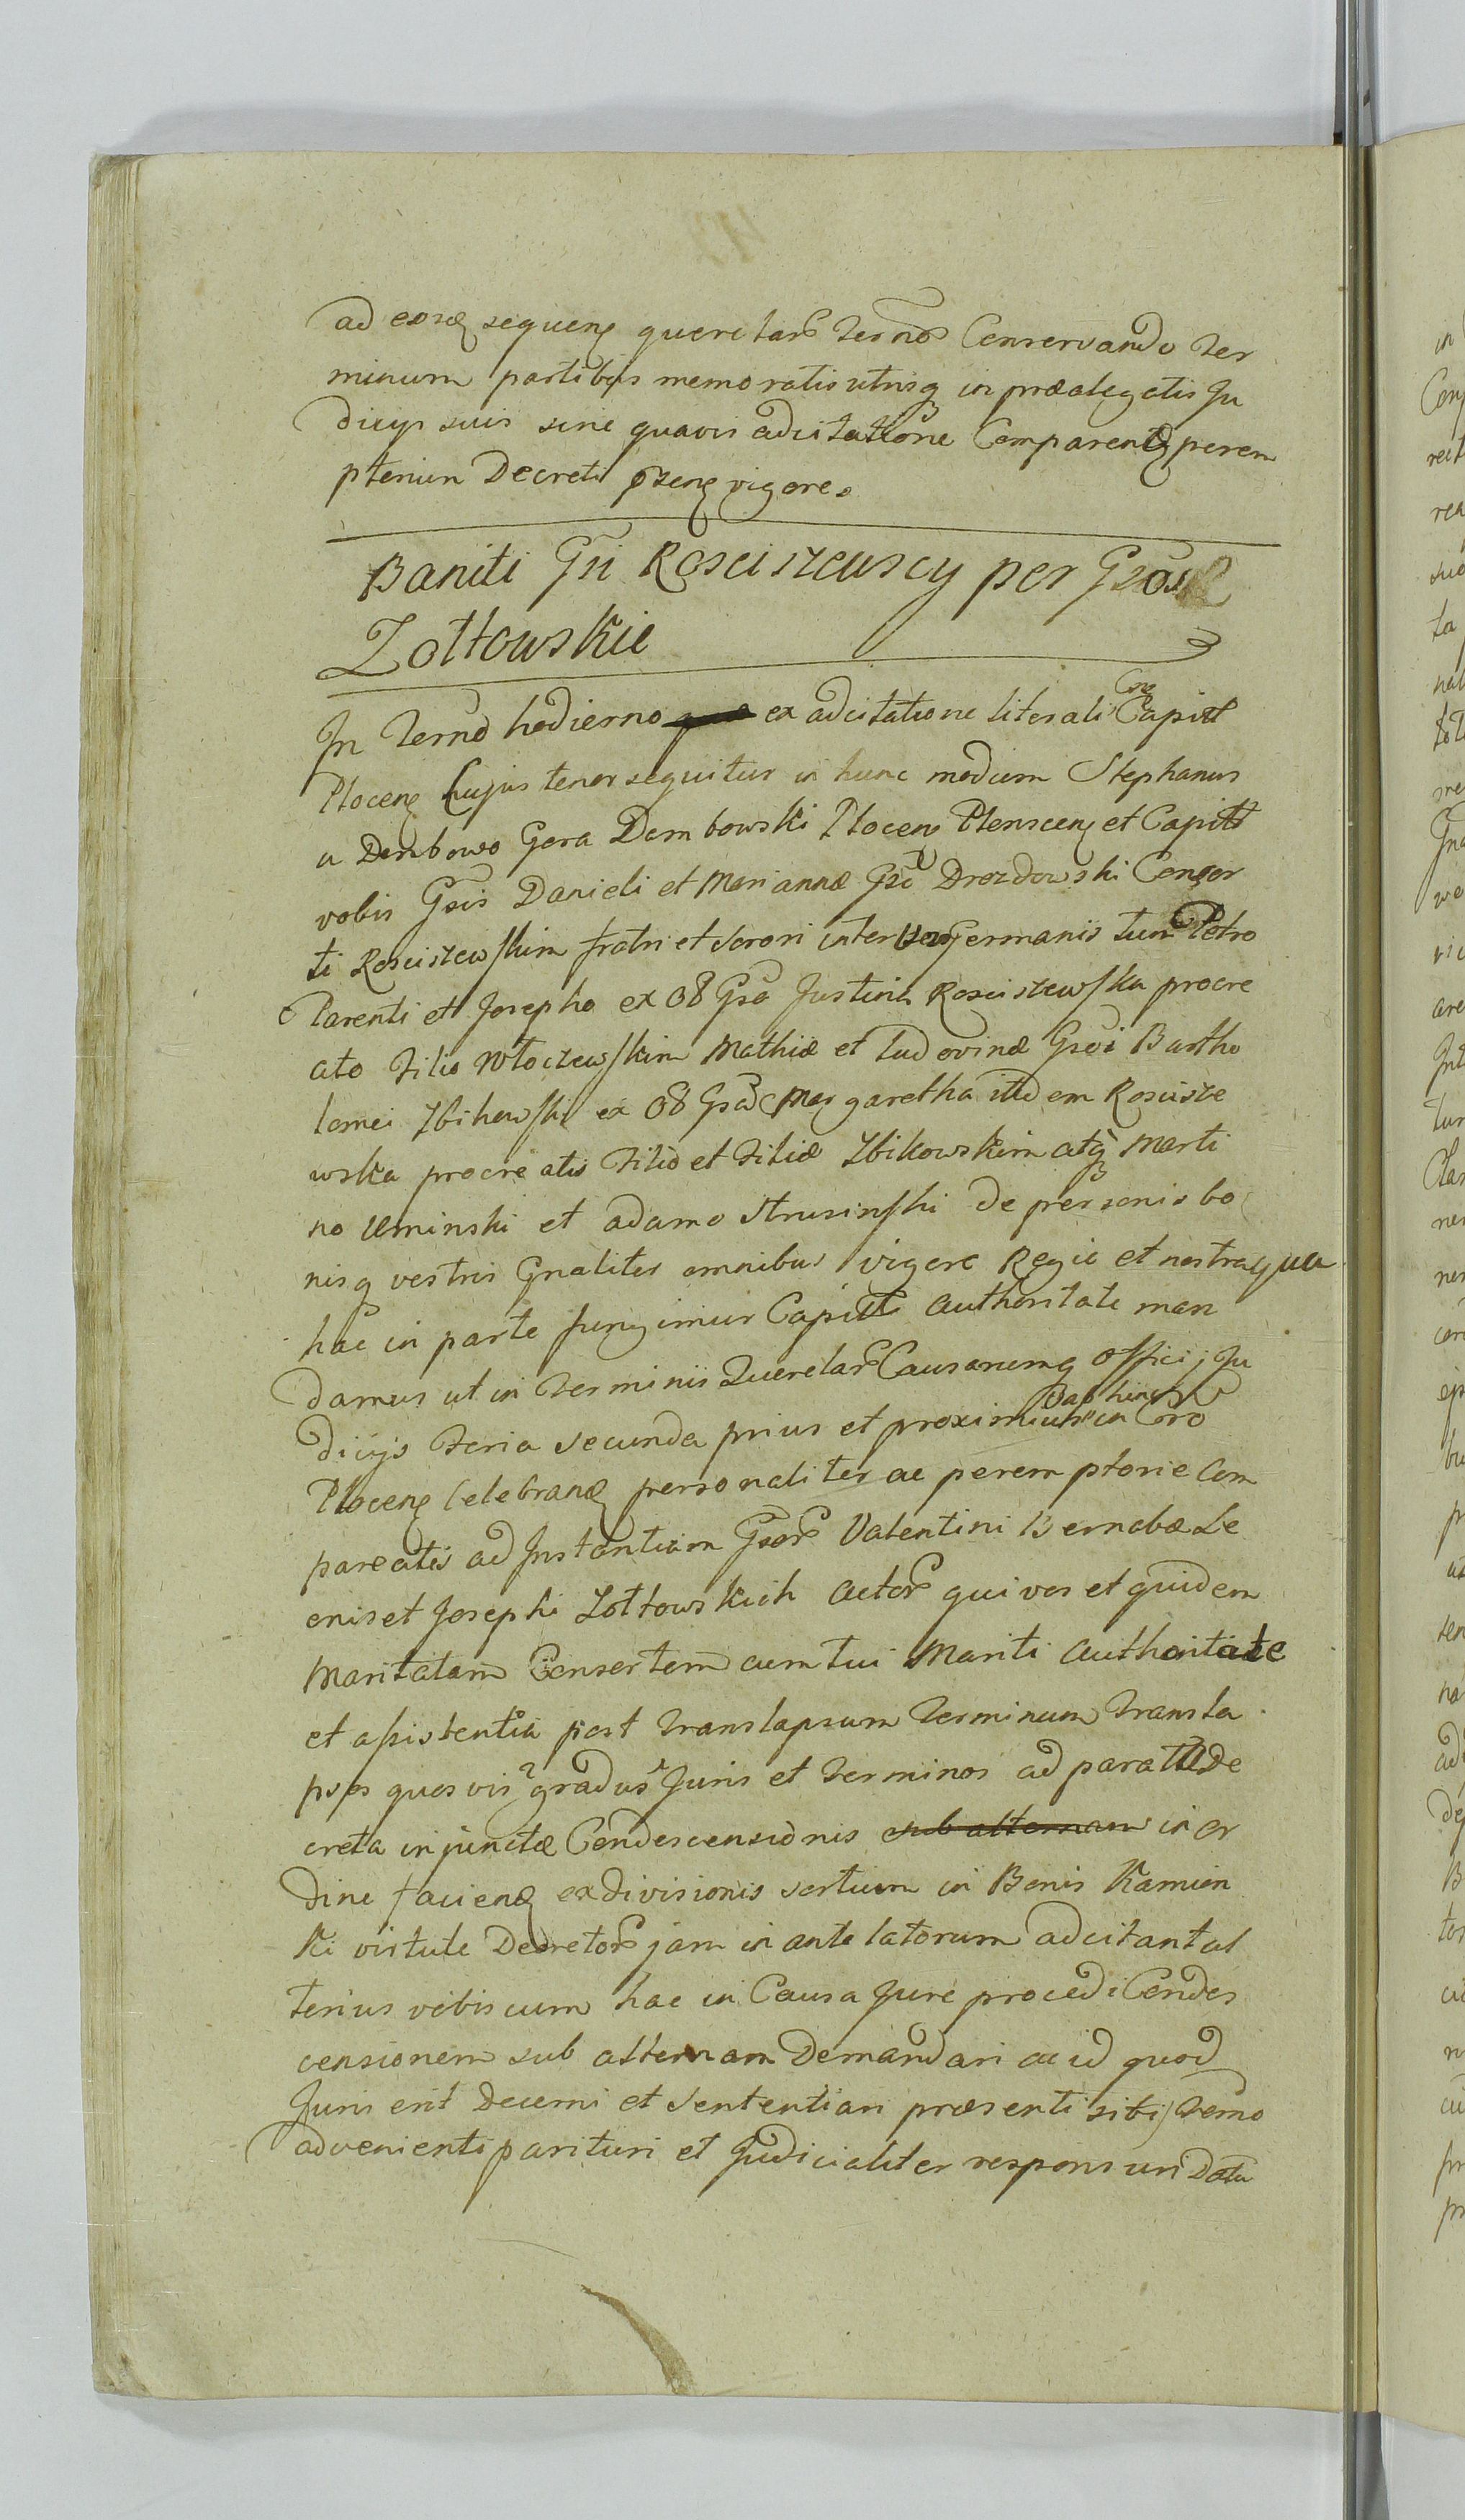 ad eosdē sequenȩ querelarȩ Ternōs Conservando Ter
minum partibus memoratis utrisqȝ in præalegatis Ju
dicijs suis sine quavis adcitatione Comparendȩ perem
ptorium Decreti pñtenȩ vigore.
Baniti Gñi Rosciszewscy per Gsos
Zołtowskie
In Termō hodierno ex adcitatione literali Cñs Capitł
Plocenȩ Cujus tenor sequitur in hunc modum Stephanus
a Dembowo Gora Dembowski Plocenȩ et Capitł
vobis Gsis Danieli et Mariannæ Gsi Drozdowski Consor
ti Rosciszewskim fratri et Sorori inter se Germanis tum Petro
Parenti et Josepho ex Oȣ Gsa Justina Rosciszewska procre
ato Filio Włoczewskim Mathiæ et Ludovinæ Gsoi Bartho
lomei Zbikowski ex Oȣ Gsa Margaretha itidem Roscisze
wska procreatis Filio et Filiæ Zbikowskim atqȝ Marti
no Uminski et Adamo Strusinski de personis bo
nisq vestris Gnaliter omnibus vigore Regia et nostra qua
hac in parte fungimur Capitł Authoritate man
damus ut in Terminis Querelarȩ Causarumq Officij Ju
dicijs Feria Secunda prius et proxime ab hinc in Cōro
Plocenȩ Celebrandȩ personaliter ac peremptorie Com
pareatis ad Instantiam Gsorȩ Valentini Bernabæ Le
onis et Josephi Zołtowskich Actorȩ qui vos et quidem
Maritatam Consortem cum tui Mariti Authoritate
et assistentia post Translapsum Terminum Transla
psos quos vis gradus Juris et Terminos ad paratte De
creta injunctæ Condescensionis <s>sub alternam</s> in or
dine faciendȩ exdivisionis sortium in Bonis Kamion
ki virtute Decretorȩ jam in ante latorum adcitant ul
terius vobiscum hac in Causa Jure procedi Condes
censionem sub alternam Demandari ac id quod
Juris erit Decerni et Sententiari præsenti sibi Termō
advenienti parituri et Judicialiter responsuri Datū